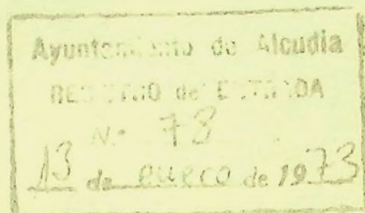 Ayuntamiento de Alcudia
REGISTRO de ENTRADA
N.º 78
13 de enero de 1973